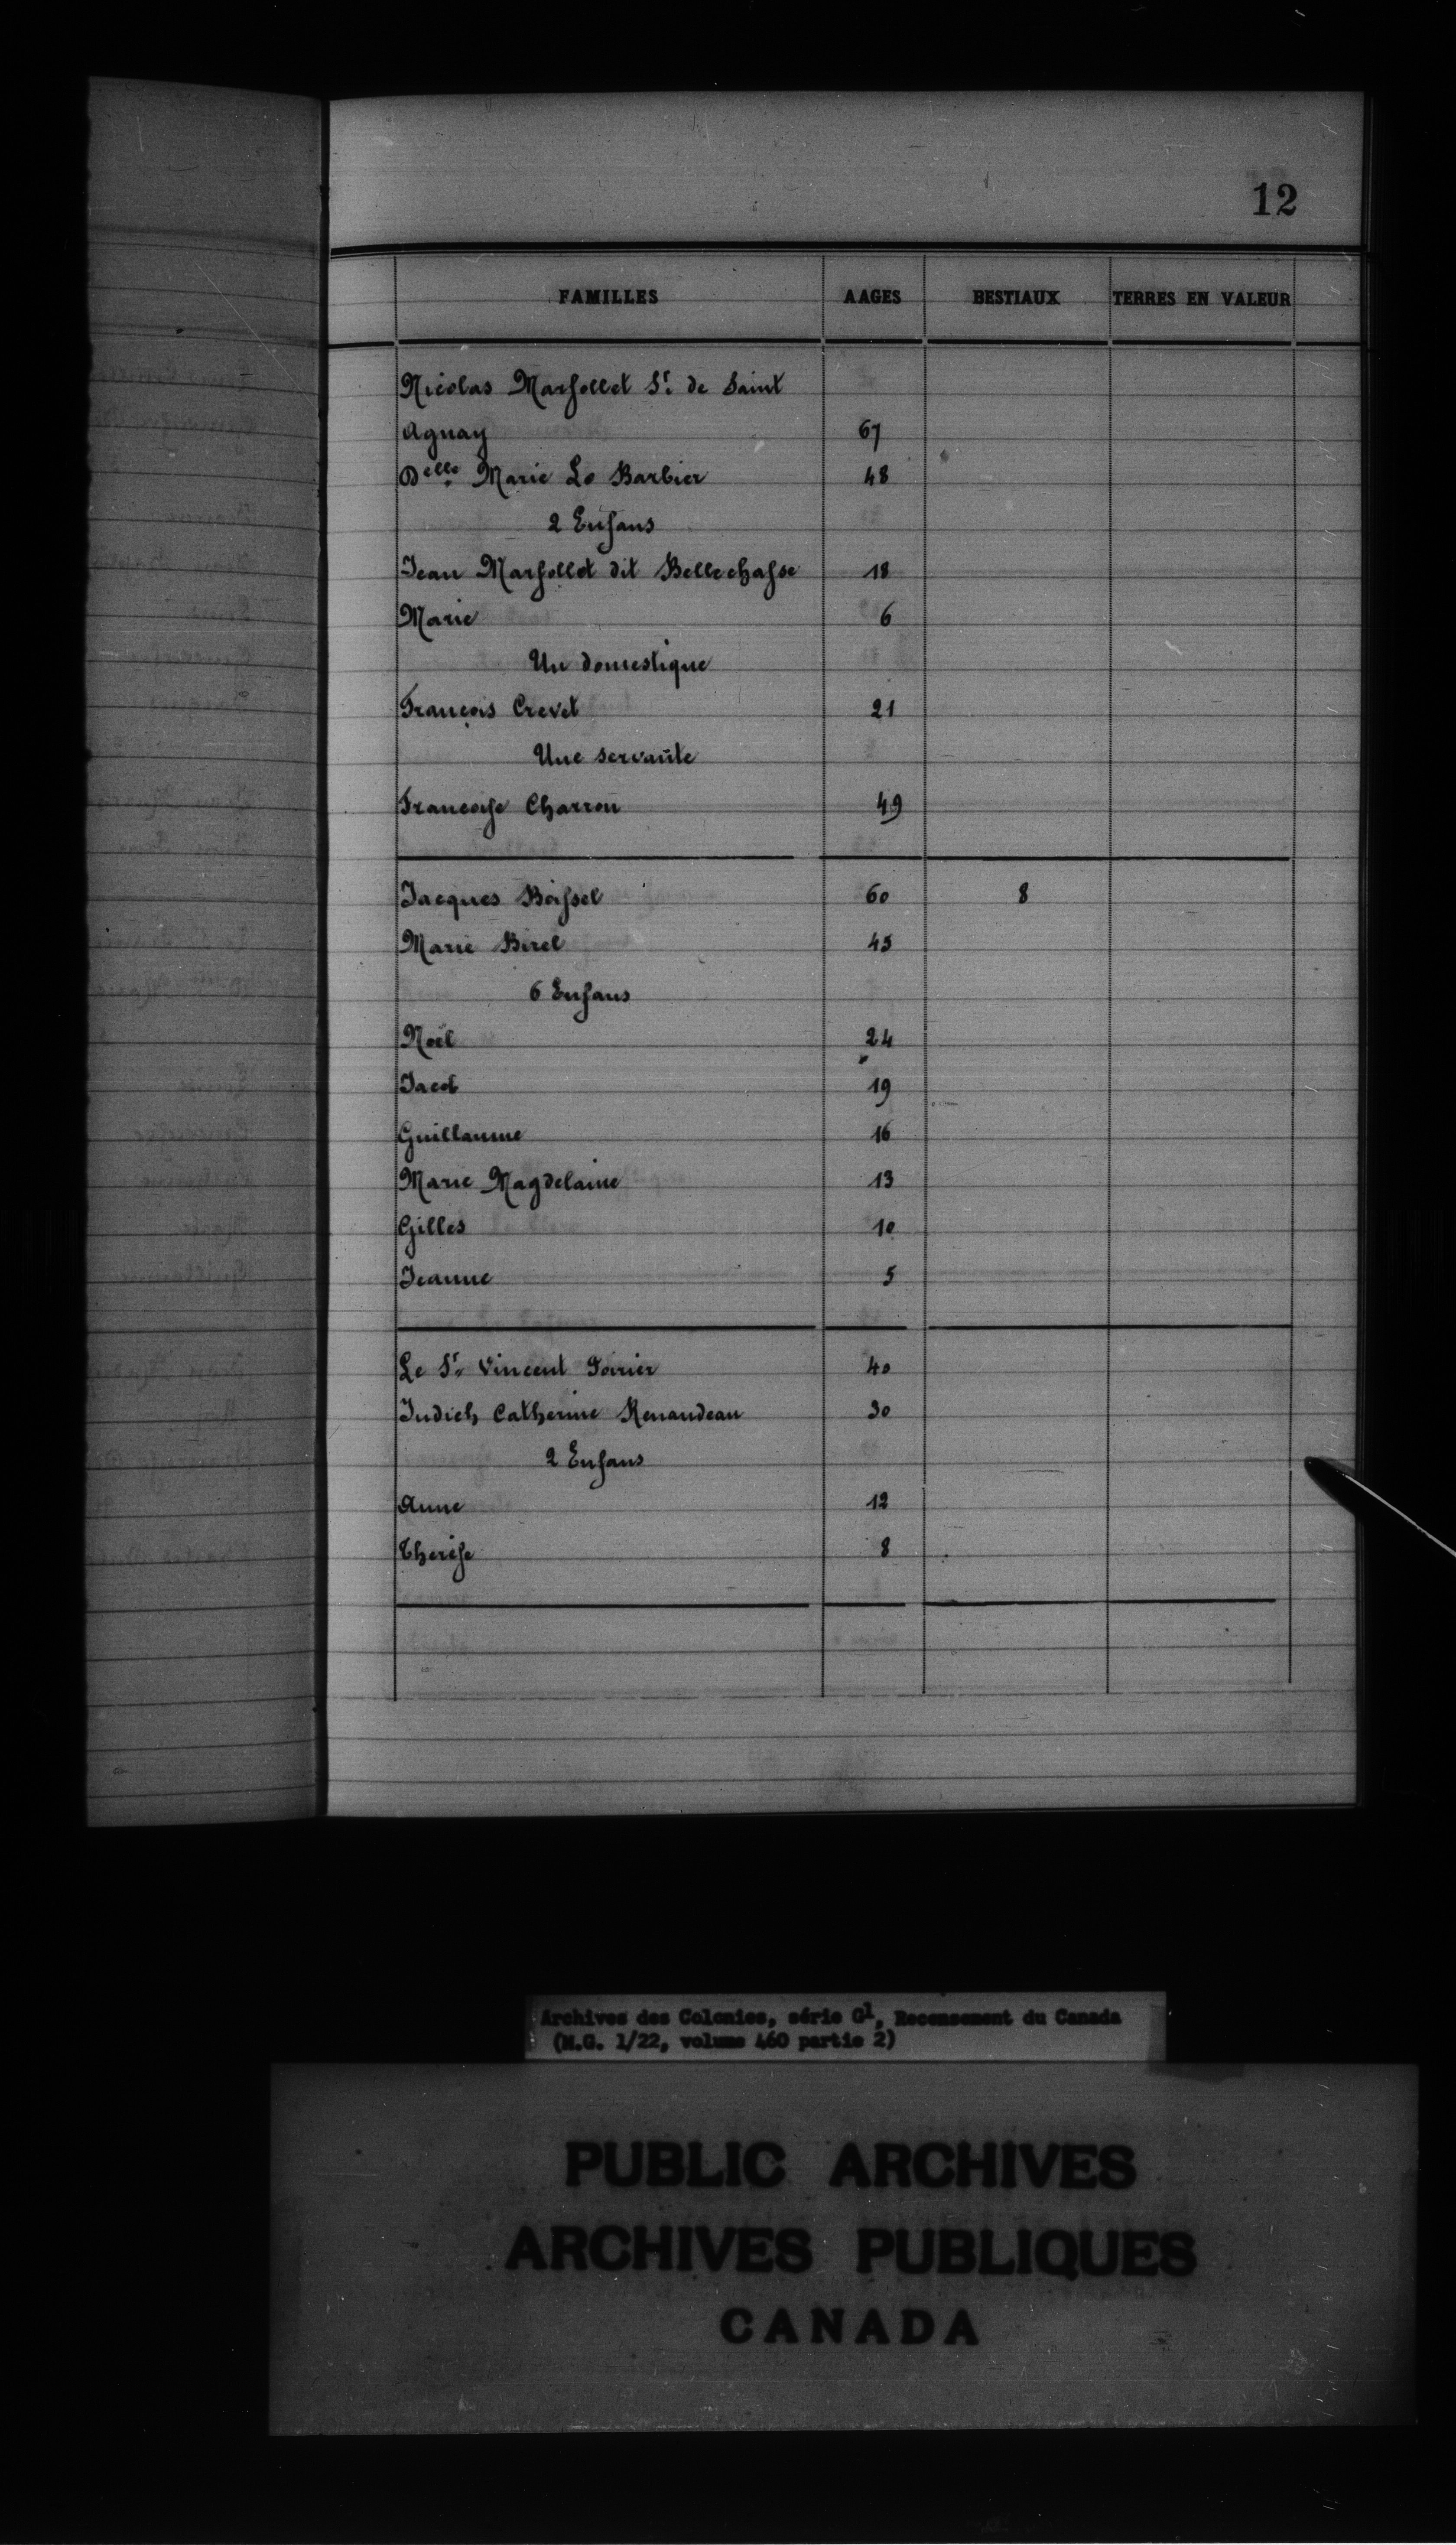 12
FAMILLES AAGES BESTIAUX TERRES EN VALEUR
Nicolas Marsollet Sr. de Saint
Agnay 67
Delle. Marie Le Barbier 48
2 Enfans
Jean Marsollet dit Bellechasse 18
Marie 6
Un domestique
François Crevet 21
Une servante
Francoise Charron 49
Jacques Boissel 60 8
Marie Birel 45
6 Enfans
Noël 24
Jacob 19
Guillaume 16
Marie Magdelaine 13
Gilles 10
Jeanne 5
Le Sr. Vincent Poirier 40
Judich Catherine Renaudeau 30
2 Enfans
Anne 12
Therese 8
Archives des Colonies, série G1, Recensement du Canada
(M.G. 1/22, volume 460 partie 2)
PUBLIC ARCHIVES
ARCHIVES PUBLIQUES
CANADA